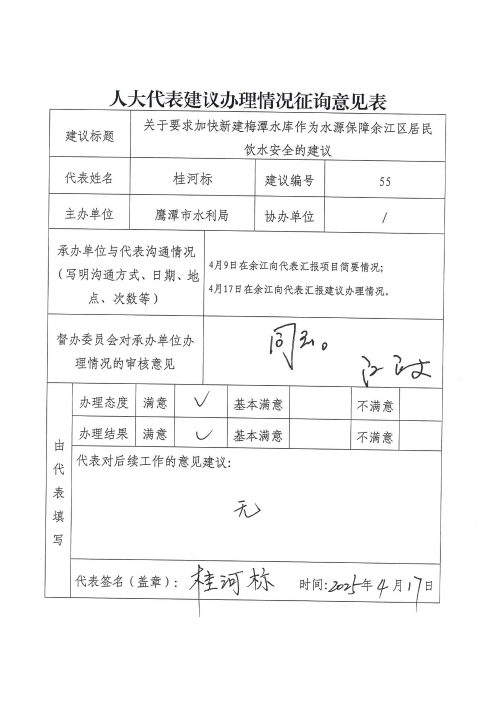 人大代表建议办理情况征询意见表
建议标题
关于要求加快新建梅潭水库作为水源保障余江区居民
饮水安全的建议
代表姓名 桂河标 建议编号 55
主办单位 鹰潭市水利局 协办单位 /
承办单位与代表沟通情况
(写明沟通方式、日期、地
点、次数等)
4月9日在余江向代表汇报项目简要情况;
4月17日在余江向代表汇报建议办理情况。
督办委员会对承办单位办
理情况的审核意见
同意。
由代表填写
办理态度 满意 ✓ 基本满意 不满意
办理结果 满意 ✓ 基本满意 不满意
代表对后续工作的意见建议:
无
代表签名(盖章): 桂河标 时间:2025年4月17日